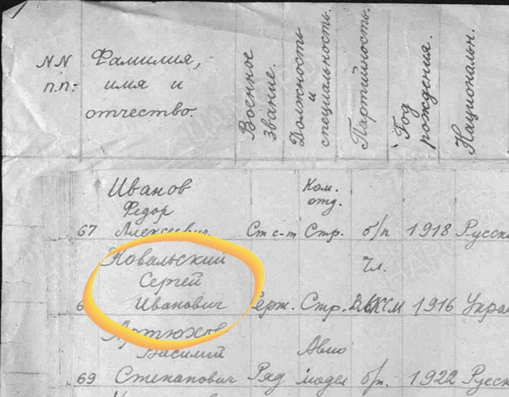 NN п.п. Фамилия, имя и отчество. Военное звание. Должность и специальность. Партийность. Год рождения. Национальн.
Иванов Ком.
Федор отд.
67 Алексеевич Ст с-т Стр. б/п 1918 Русск
Ковальский Чл.
Сергей
Иванович Серж. Стр. ВЛКСМ 1916 Укра
Артюхов
Василий Авио
69 Степанович Ряд модел б/п. 1922 Русск